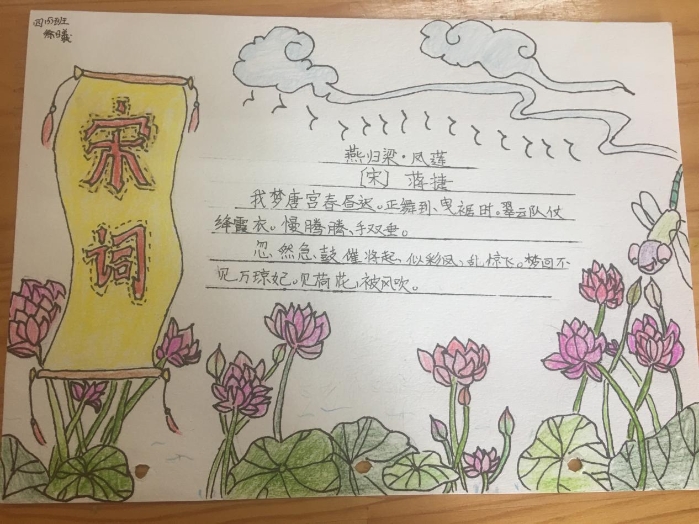 宋
词
燕归梁·风莲
[宋] 蒋捷
我梦唐宫春昼迟。正舞到、曳裾时。翠云队仗
绛霞衣。慢腾腾、手双垂。
忽然急鼓催将起、似彩凤、乱惊飞。梦回不
见万琼妃。见荷花、被风吹。